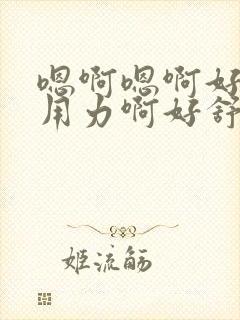 嗯啊嗯啊好
用力啊好舒
姬流觞